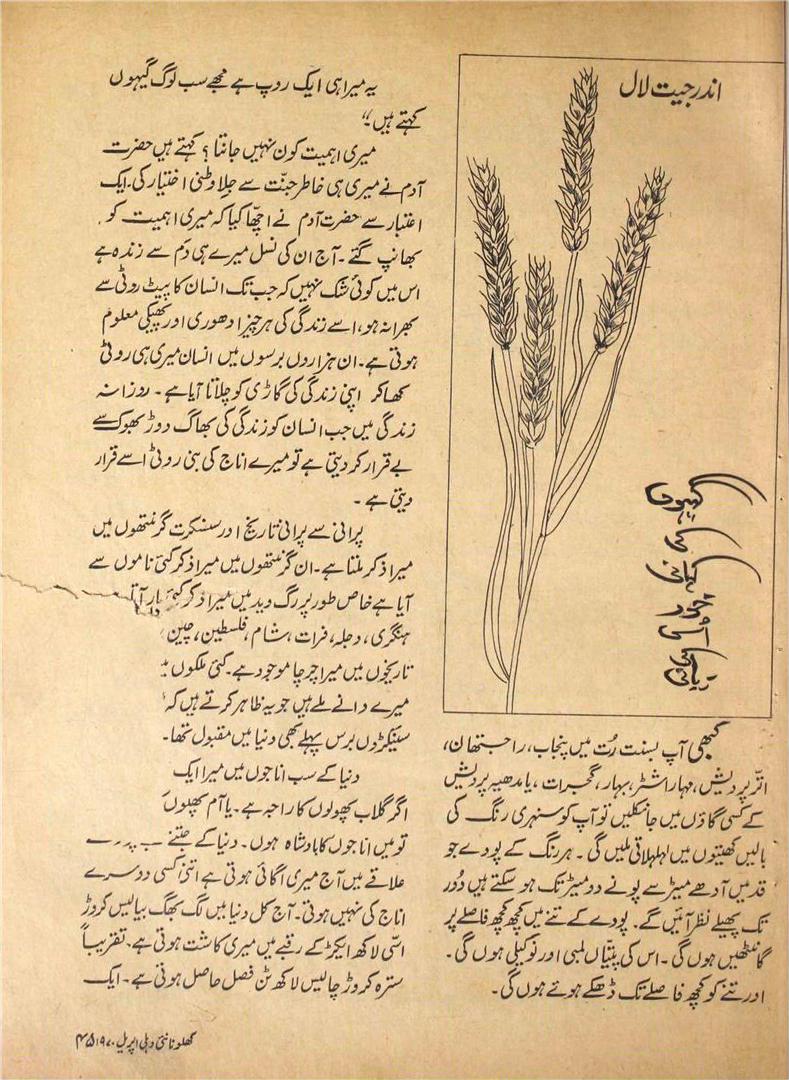 اندرجیت لال
گیہوں
کی
کہانی
خود
اس کی
زبانی
کبھی آپ بسنت رُت میں پنجاب، راجستھان،
اتّر پردیش، مہاراشٹر، بہار، گجرات، یا مدھیہ پردیش
کے کسی گاؤں میں جا نکلیں تو آپ کو سنہری رنگ کی
بالیں کھیتوں میں لہلہاتی ملیں گی۔ ہر رنگ کے پودے جو
قد میں آدھے میٹر سے پونے دو میٹر تک ہو سکتے ہیں دُور
تک پھیلے نظر آئیں گے۔ پودے کے تنے میں کچھ کچھ فاصلے پر
گانٹھیں ہوں گی۔ اس کی پتیّاں لمبی اور نوکیلی ہوں گی۔
اور تنے کو کچھ فاصلے تک ڈھکے ہوتے ہوں گی۔
یہ میرا ہی ایک روپ ہے مجھے سب لوگ گیہوں
کہتے ہیں“
میری اہمیت کون نہیں جانتا؟ کہتے ہیں حضرت
آدم نے میری ہی خاطر جنّت سے جلاوطنی اختیار کی۔ ایک
اعتبار سے حضرت آدم نے اچھّا کیا کہ میری اہمیت کو
بھانپ گئے۔ آج ان کی نسل میرے ہی دَم سے زندہ ہے
اس میں کوئی شک نہیں کہ جب تک انسان کا پیٹ روٹی سے
بھرا نہ ہو، اسے زندگی کی ہر چیز ادھوری اور پھیکی معلوم
ہوتی ہے۔ ان ہزاروں برسوں میں انسان میری ہی روٹی
کھا کر اپنی زندگی کی گاڑی کو چلاتا آیا ہے۔ روزانہ
زندگی میں جب انسان کو زندگی کی بھاگ دوڑ بھوک سے
بے قرار کر دیتی ہے تو میرے اناج کی بنی روٹی اسے قرار
دیتی ہے۔
پرانی سے پرانی تاریخ اور سنسکرت گرنتھوں میں
میرا ذکر ملتا ہے۔ ان گرنتھوں میں میرا ذکر کئی ناموں سے
آیا ہے خاص طور پر رگ وید میں میرا ذکر کئی بار آتا
ہنگری، دجلہ، فرات، شام، فلسطین، چین
تاریخوں میں میرا چرچا موجود ہے۔ کئی ملکوں
میرے دانے ملے ہیں جو یہ ظاہر کرتے ہیں کہ
سینکڑوں برس پہلے بھی دنیا میں مقبول تھا۔
دنیا کے سب اناجوں میں میرا ایک
اگر گلاب پھولوں کا راجہ ہے۔ یا آم پھلوں
تو میں اناجوں کا بادشاہ ہوں۔ دنیا کے جتنے
علاقے میں آج میری اگائی ہوتی ہے اتنی کسی دوسرے
اناج کی نہیں ہوتی۔ آج کل دنیا میں لگ بھگ بیالیس کروڑ
اسّی لاکھ ایکڑ کے رقبے میں میری کاشت ہوتی ہے۔ تقریباً
سترہ کروڑ چالیس لاکھ ٹن فصل حاصل ہوتی ہے۔ ایک
کھلونا نئی دہلی اپریل ۱۹۷۰ ۴۵